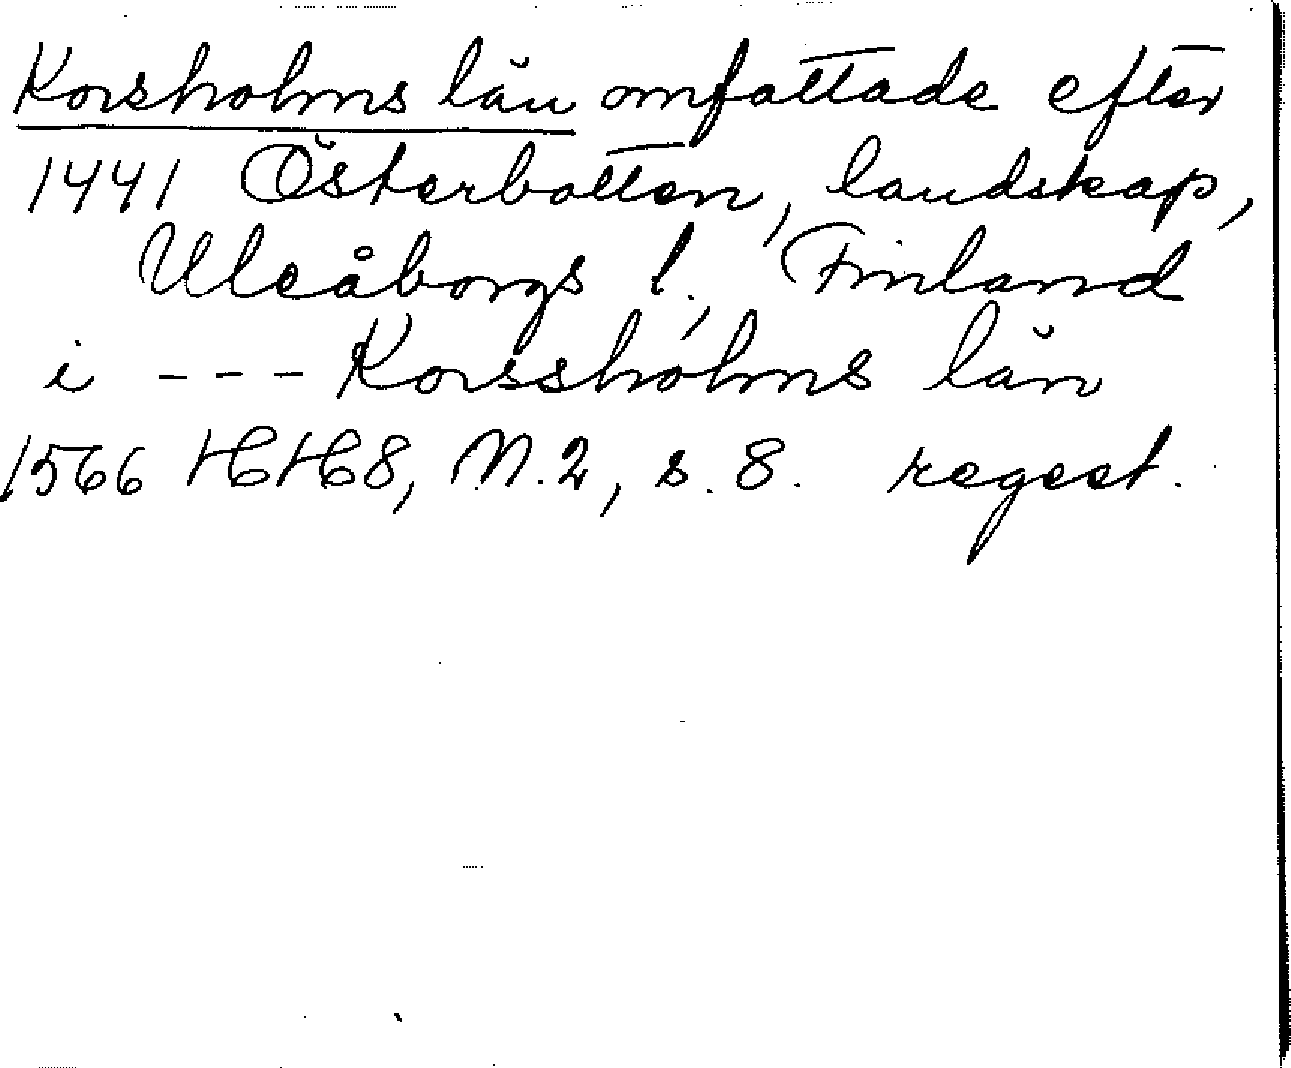 Korsholms län omfattade efter
1441 Österbotten, landskap,
Uleåborgs l., Finland
i --- Korssholms län
1566 HH8, N.2, s. 8. regest.